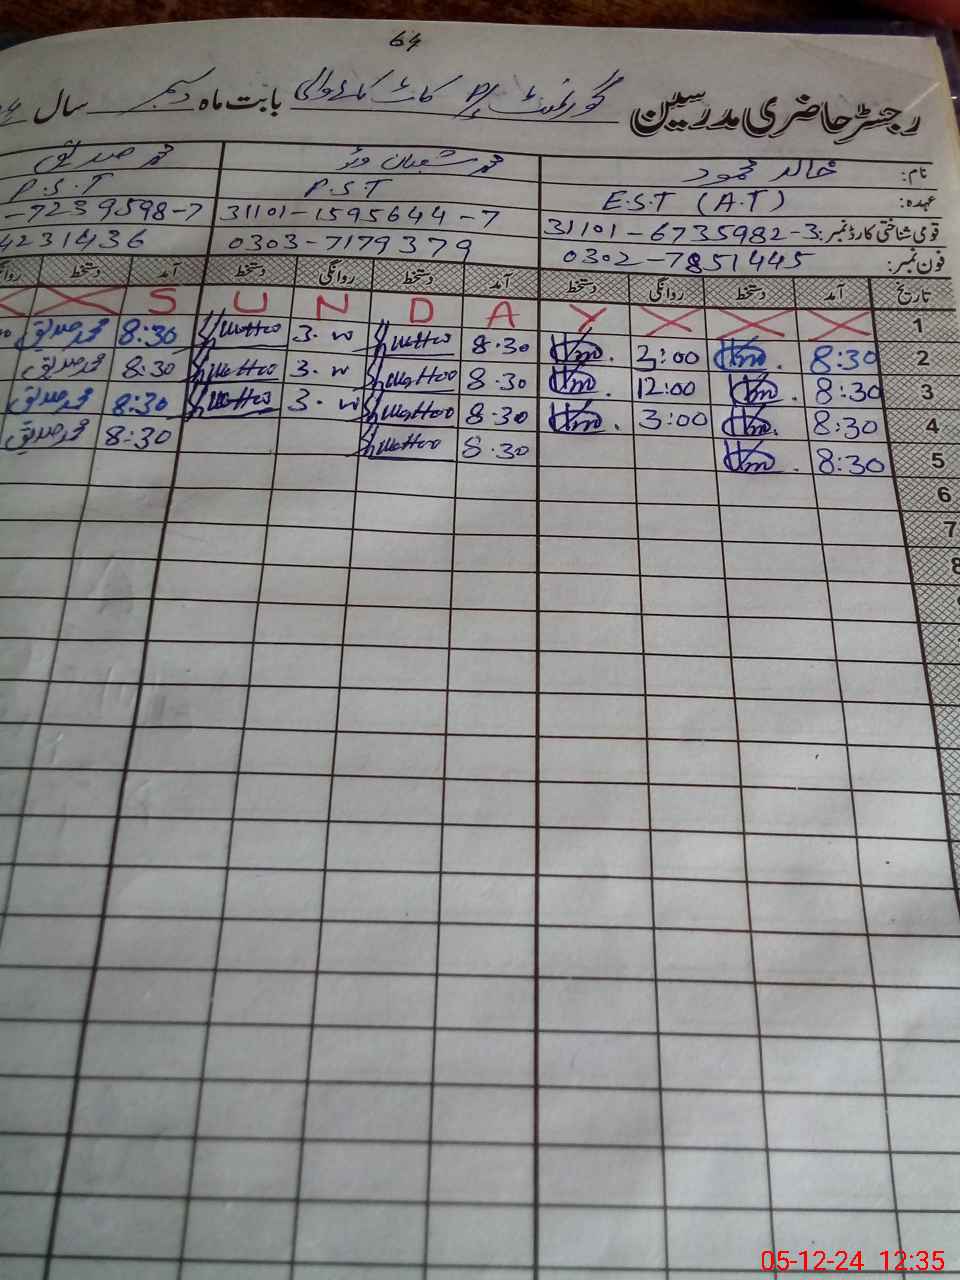 64
رجسٹر حاضری مدرسین گورنمنٹ بابت ماہ دسمبر سال
نام: خالد محمود محمد شعبان وٹو محمد صدیق
عہدہ: E.S.T (A.T) P.S.T P.S.T
قومی شناختی کارڈ نمبر: 31101-6735982-3 31101-1595644-7 -7239598-7
فون نمبر: 0302-7851445 0303-7179379 4231436
تاریخ آمد دستخط روانگی دستخط آمد دستخط روانگی دستخط آمد دستخط
1 X X X S U N D A Y X
2 8:30 3:00 8.30 3. 8:30 محمد صدیق
3 8:30 12:00 8.30 3. 8:30 محمد صدیق
4 8:30 3:00 8.30 3. 8:30 محمد صدیق
5 8:30 8.30 8:30 محمد صدیق
6
7
8
05-12-24 12:35